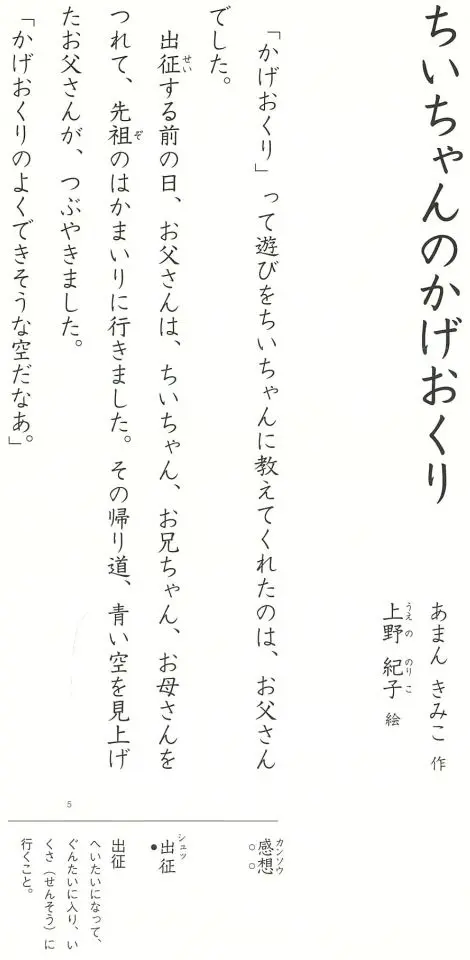 ちいちゃんのかげおくり
あまん きみこ 作
上野 紀子 絵
うえ の のり こ
「かげおくり」って遊びをちいちゃんに教えてくれたのは、お父さん
でした。
出征する前の日、お父さんは、ちいちゃん、お兄ちゃん、お母さんを
せい
つれて、先祖のはかまいりに行きました。その帰り道、青い空を見上げ
ぞ
たお父さんが、つぶやきました。
「かげおくりのよくできそうな空だなあ。」
5
感想
カンソウ
出征
シュッ
出征
へいたいになって、
ぐんたいに入り、い
くさ(せんそう)に
行くこと。